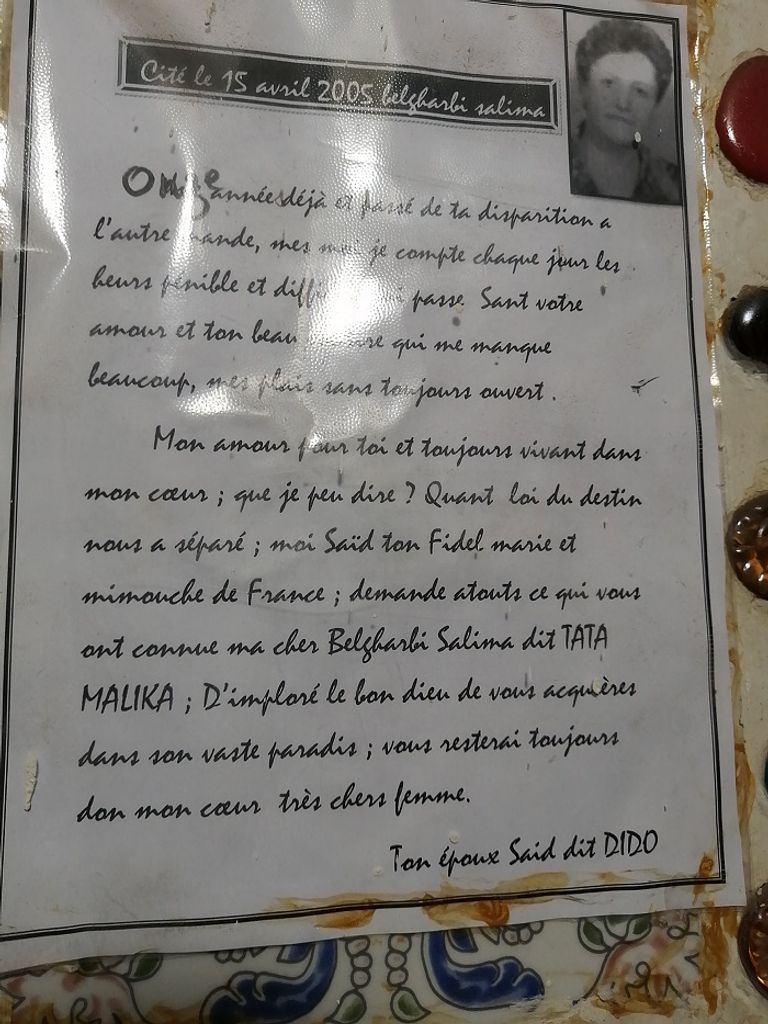 Cité le 15 avril 2005 belgharbi salima
Onze années déjà et passé de ta disparition a
l'autre mande, mes moi je compte chaque jour les
heurs pénible et passe. Sant votre
amour et ton beau qui me manque
beaucoup, mes plais sans toujours ouvert.
Mon amour pour toi et toujours vivant dans
mon cœur ; que je peu dire ? Quant loi du destin
nous a séparé ; moi Saïd ton Fidel marie et
mimouche de France ; demande atouts ce qui vous
ont connue ma cher Belgharbi Salima dit TATA
MALIKA ; D'imploré le bon dieu de vous acquières
dans son vaste paradis ; vous resterai toujours
don mon cœur très chers femme.
Ton époux Said dit DIDO